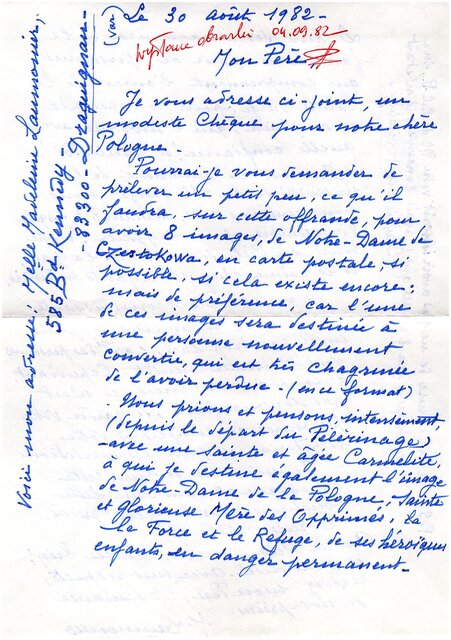 Le 30 août 1982-
(Var)
04.09.82
Mon Père
Je vous adresse ci-joint, un
modeste Chèque pour notre chère
Pologne.
Pourrai-je vous demander de
prélever un petit peu, ce qu'il
faudra, sur cette offrande, pour
avoir 8 images, de Notre-Dame de
Czestokowa, en carte postale, si
possible, si cela existe encore;
mais de préférence, car l'une
de ces images sera destinée à
une personne nouvellement
convertie, qui est très chagrinée
de l'avoir perdue. (en ce format)
. Nous prions et pensons, intensément,
(depuis le départ du Pélérinage)
-avec une sainte et âgée Carmélite,
à qui je destine également l'image
de Notre-Dame de la Pologne, Sainte
et glorieuse Mère des Opprimés, la
la Force et le Refuge, de ses héroïques
enfants, en danger permanent-
Voici mon adresse: Melle Madeleine Laumonier,
585 Bd Kennedy-
-83300-Draguignan-